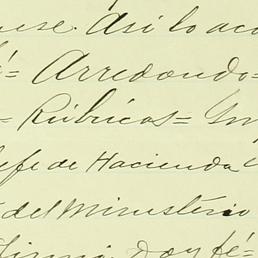 Así lo
é= Arredondo=
= Rúbricas=
efe de Hacienda
del Ministerio
doy fé=